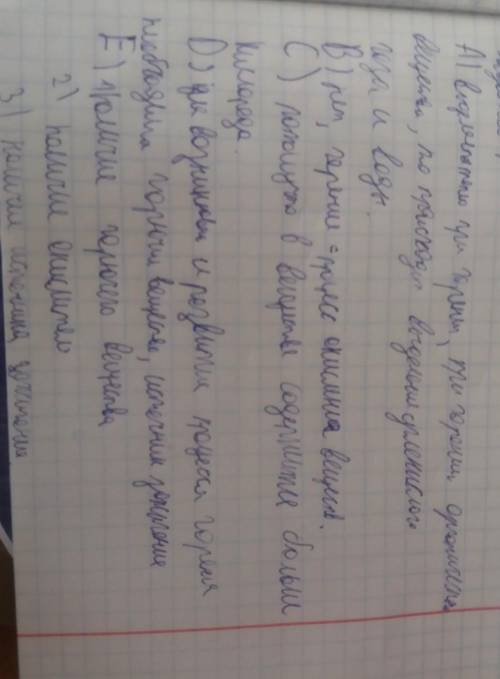 A) выделяемые при горении, при горении органичес
вещества, то происходит выделение углекислого
газа и воды.
B) нет, горение - процесс окисления веществ.
C) потому что в веществе содержится больше
кислорода.
D) для возникновен и развития процесса горения
необходимы горючие вещества, источник зажигания
E) 1) наличие горючего вещества
2) наличие окислителя
3) наличие источника зажигания